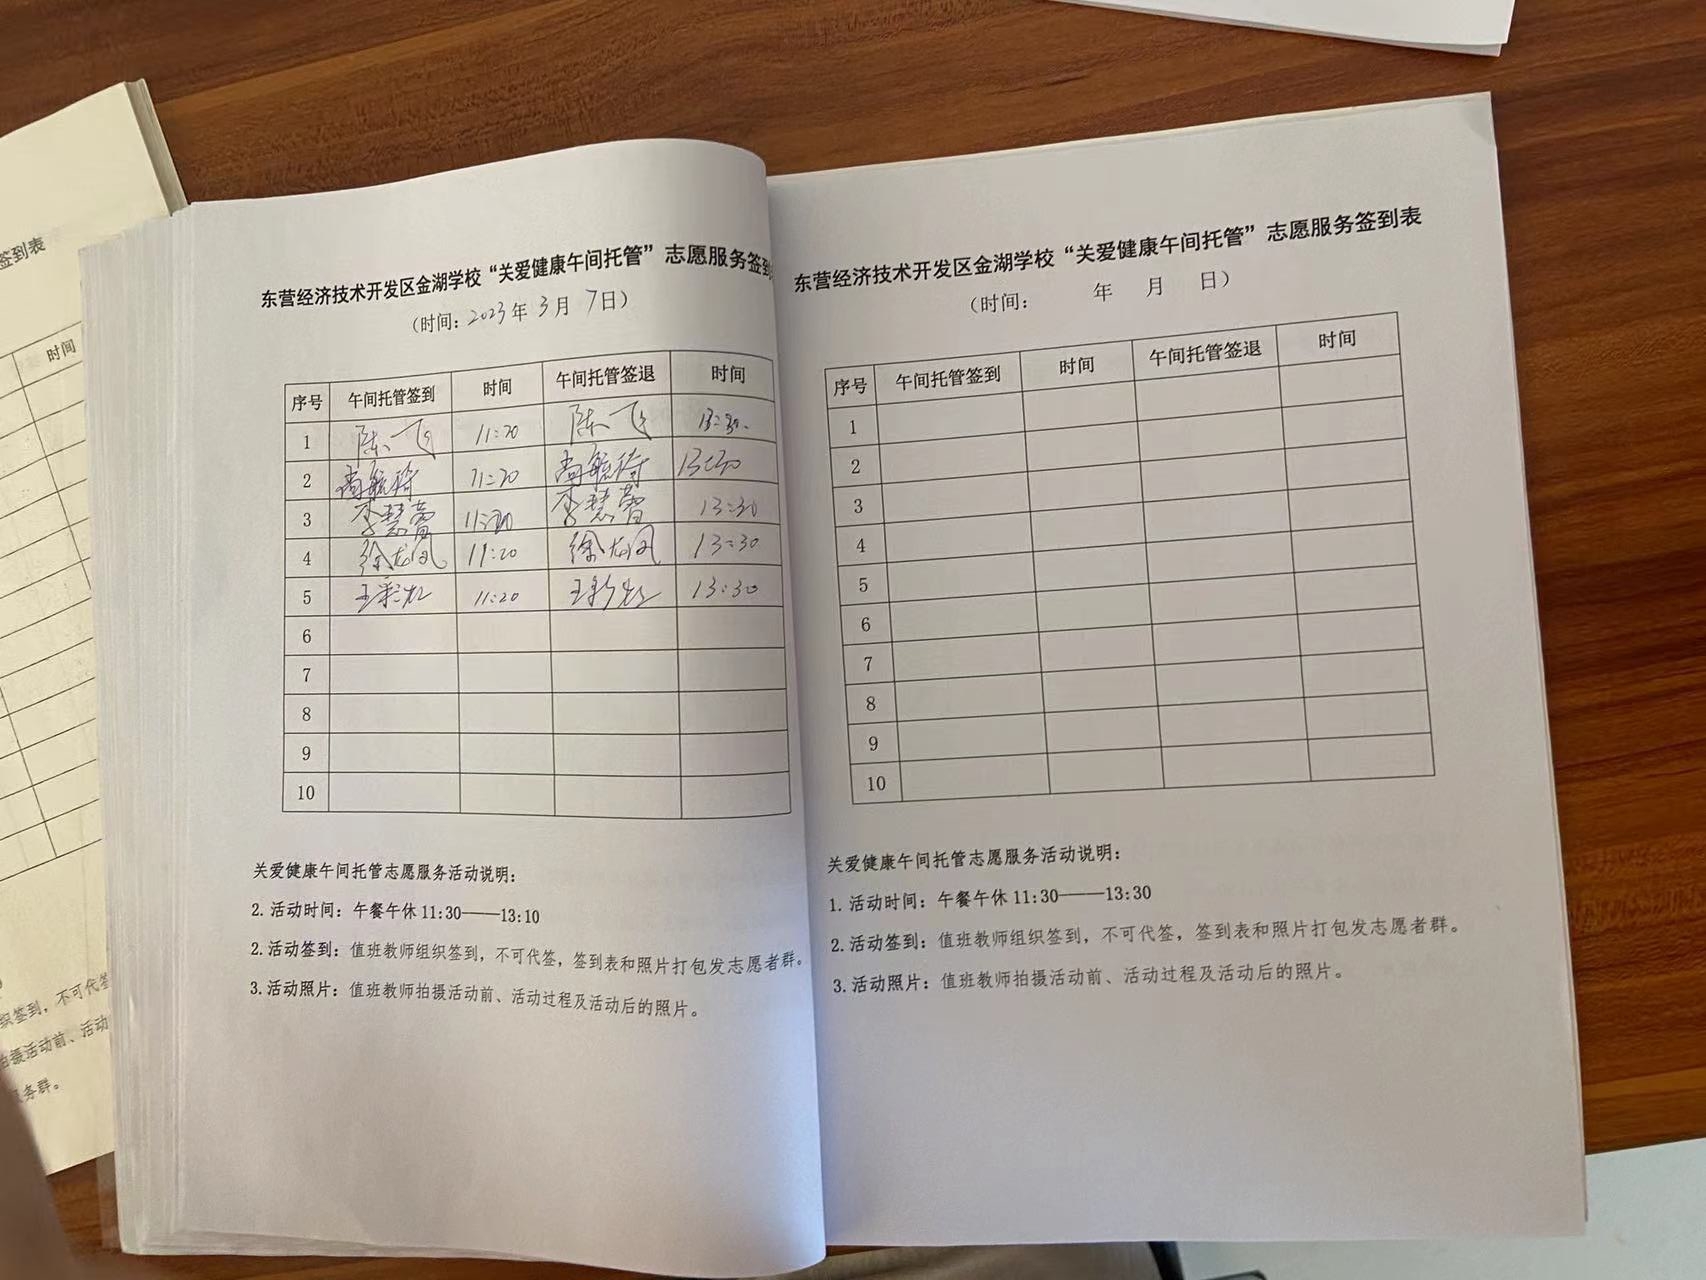 签到表
时间
不可代签
拍摄活动前、活动
务群。
东营经济技术开发区金湖学校“关爱健康午间托管”志愿服务签到
（时间：2023年 3月 7日）
序号 午间托管签到 时间 午间托管签退 时间
1 陈飞 11:20 陈飞 13:30
2 11:20 13:30
3 李慧 11:20 李慧 13:30
4 徐龙凤 11:20 徐龙凤 13:30
5 王彩虹 11:20 王彩虹 13:30
6
7
8
9
10
关爱健康午间托管志愿服务活动说明：
2. 活动时间：午餐午休 11:30——13:10
2. 活动签到：值班教师组织签到，不可代签，签到表和照片打包发志愿者群。
3. 活动照片：值班教师拍摄活动前、活动过程及活动后的照片。
东营经济技术开发区金湖学校“关爱健康午间托管”志愿服务签到表
（时间： 年 月 日）
序号 午间托管签到 时间 午间托管签退 时间
1
2
3
4
5
6
7
8
9
10
关爱健康午间托管志愿服务活动说明：
1. 活动时间：午餐午休 11:30——13:30
2. 活动签到：值班教师组织签到，不可代签，签到表和照片打包发志愿者群。
3. 活动照片：值班教师拍摄活动前、活动过程及活动后的照片。